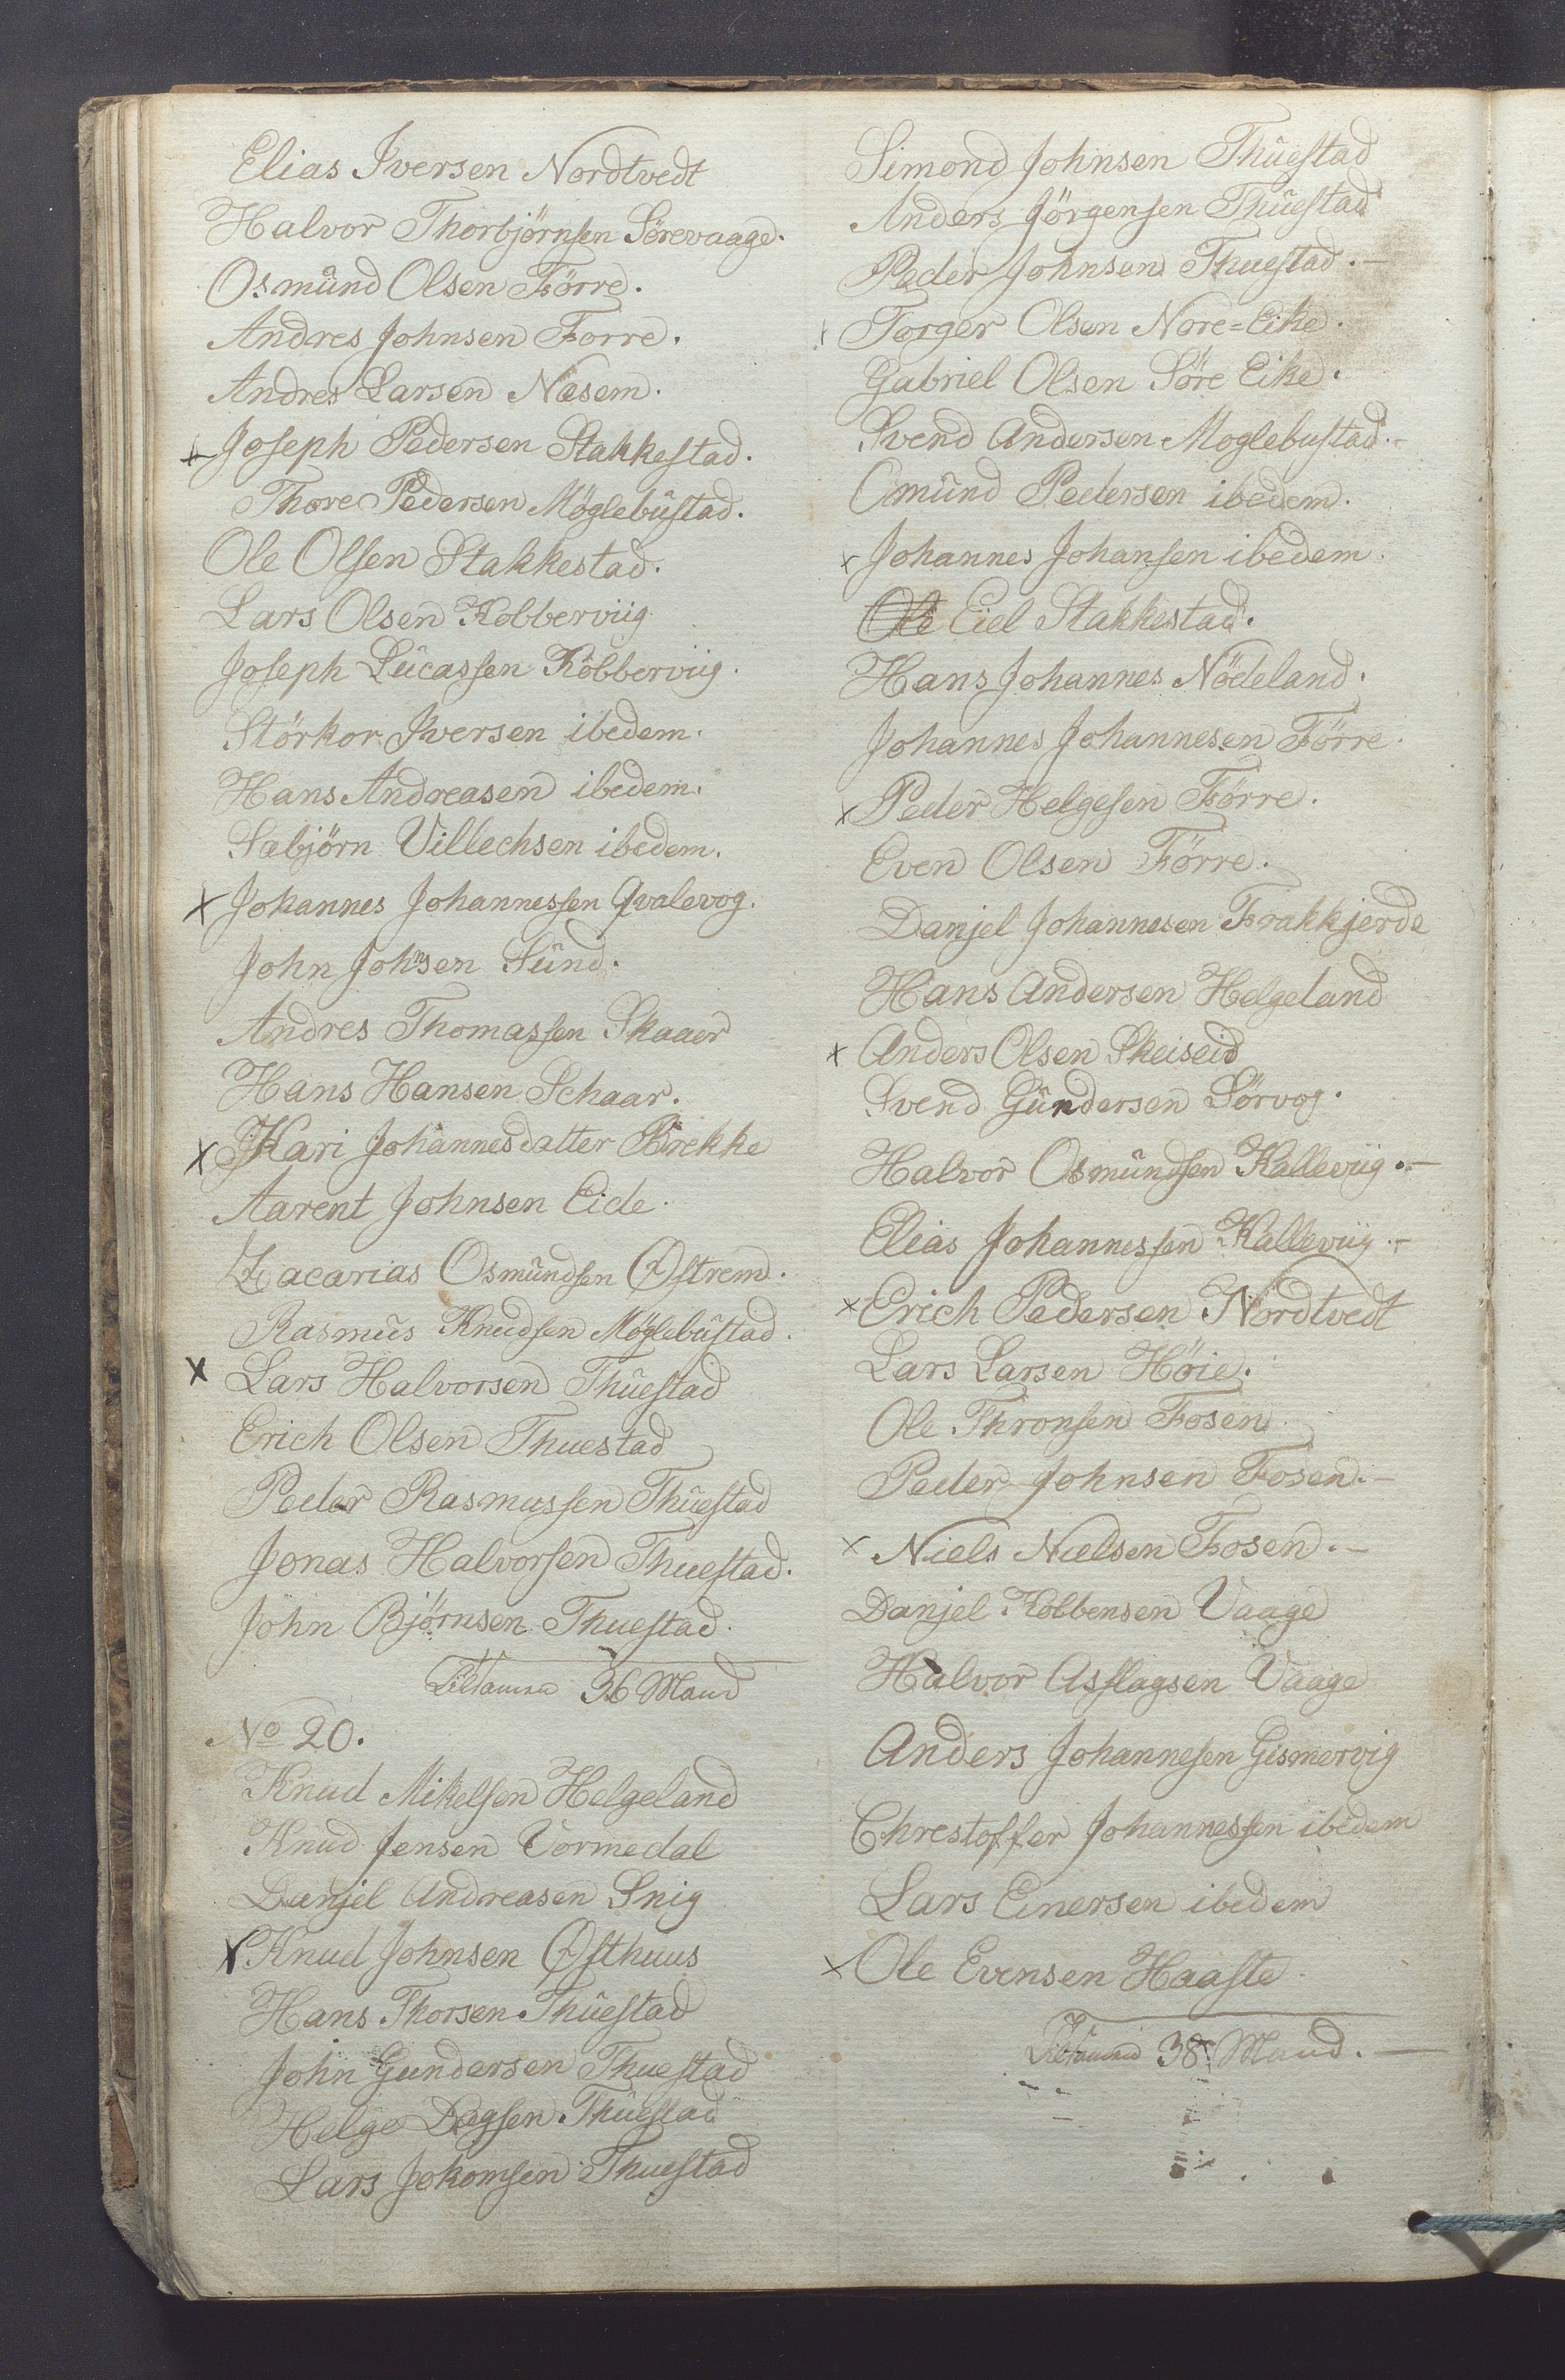 Elias Iversen Nordtvedt
Halvor Thorbjörnsen Sörevaage.
Osmünd Olsen Förre.
Andres Johnsen Forre.
Andres Larsen Næsem.
x Joseph Pedersen Stakkestad.
Thore Pedersen Möglebüstad.
Ole Olsen Stakkestad.
Lars Olsen Kobberviig
Joseph Lücassen Kobberviig.
Störkor Iversen ibedem.
Hans Andreasen ibedem.
Sabjörn Villechsen ibedem.
x Johannes Johannessen Qvalevog.
John Johnsen Sünd.
Andres Thomassen Skaaer
Hans Hansen Schaar.
x Kari Johannesdatter Brekke
Aarent Johnsen Eide.
Zacarias Osmündsen Østrem.
Rasmüs Knudsen Möglebüstad.
x Lars Halvorsen Thüestad
Erich Olsen Thuestad
Peder Rasmussen Thüestad
Jonas Halvorsen Thuestad.
John Björnsen Thuestad.
Tilsamen 36 Mand
No 20.
Knud Mikelsen Helgeland
Knud Jensen Vormedal
Danjel Andreasen Snig
x Knud Johnsen Østhuus
Hans Thorsen Thüestad
John Gundersen Thuestad
Helge Dagsen Thüestad
Lars Jokomsen Thuestad
Simond Johnsen Thüestad
Anders Jörgensen Thüestad
Peder Johnsen Thuestad.-
x Torger Olsen Nore=Eike.
Gabriel Olsen Söre Eike.
Svend Andersen Moglebustad.-
Omünd Pedersen ibedem.
x Johannes Johansen ibedem.
Ole Eiel Stakkestad.
Hans Johannes Nödeland.
Johannes Johannesen Förre.
x Peder Helgesen Förre.
Even Olsen Förre.
Danjel Johannesen Frakkjerde
Hans Andersen Helgeland
x Anders Olsen Skeiseid
Svend Gündersen Sörvog.
Halvor Osmündsen Kalleviig.-
Elias Johannessen Kalleviig.-
x Erich Pedersen Nordtvedt
Lars Larsen Höie.
Ole Thronsen Fosen
Peder Johnsen Fosen.-
x Niels Nielsen Fosen.-
Danjel Kolbensen Vaage
Halvor Asslagsen Vaage
Anders Johannesen Gismervig
Chrestoffer Johannessen ibedem
Lars Einersen ibedem
x Ole Evensen Haaste.
Tilsamen 38 Mand.-